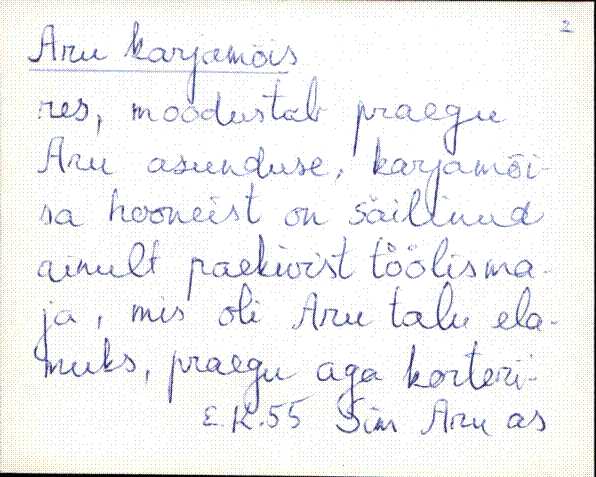 2
Aru karjamõis
res, moodustab praegu
Aru asunduse, karjamõi-
sa hooneist on säilinud
ainult paekivist töölisma-
ja, mis oli Aru talu ela-
muks, praegu aga korteri-
E.K.55 Sim Aru as